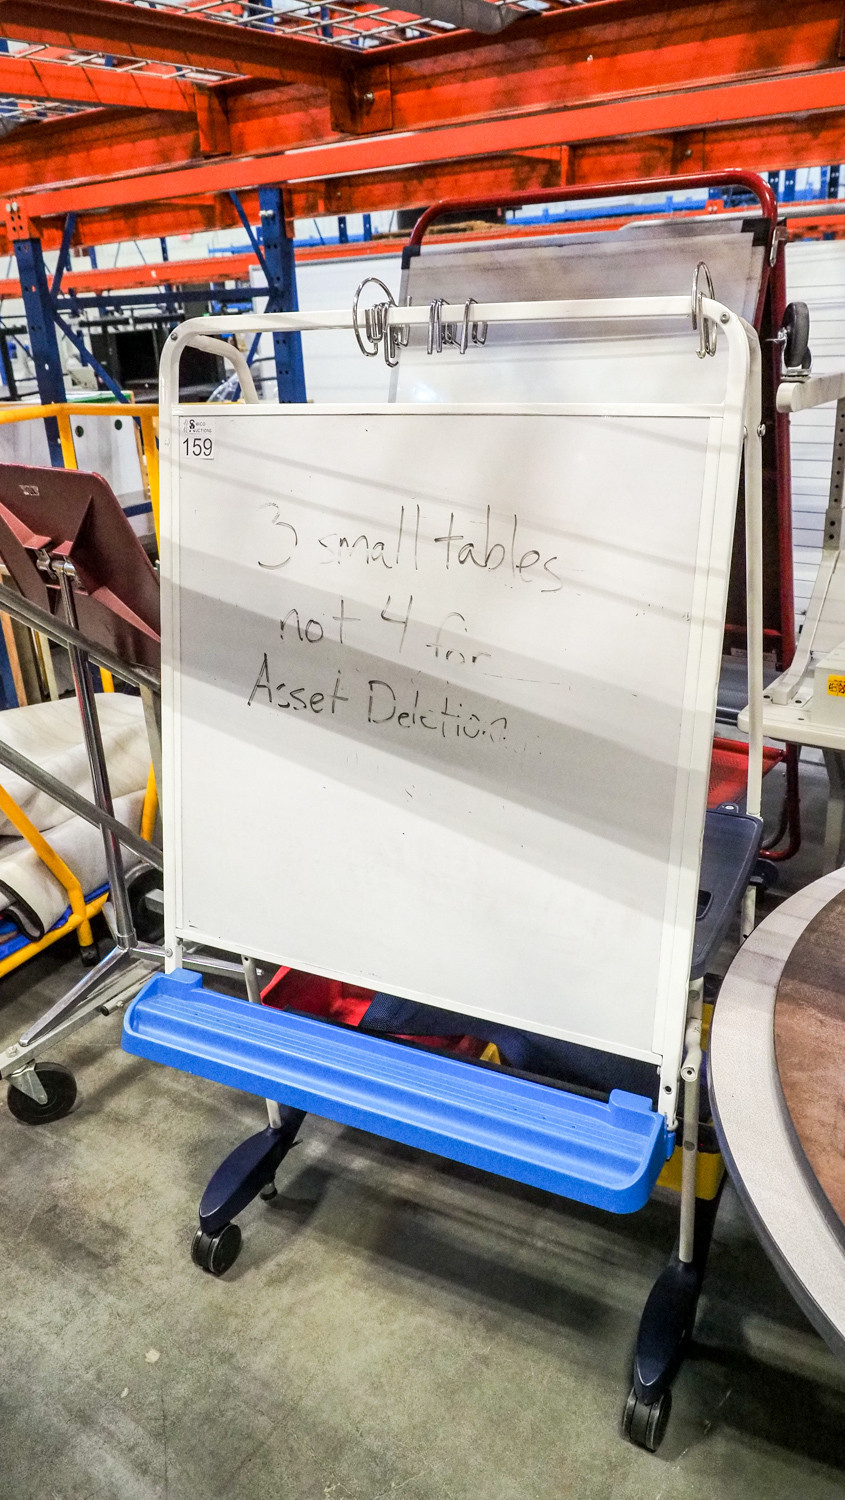 159
3 small tables
not 4 for
Asset Deletion